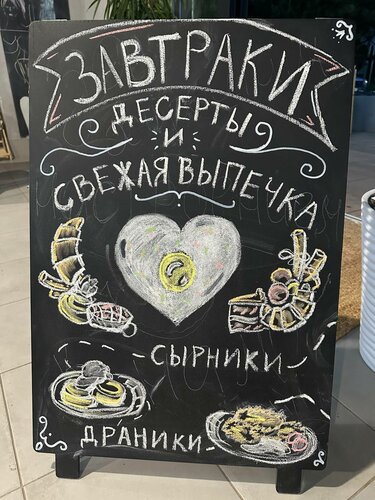 ЗАВТРАКИ
ДЕСЕРТЫ
И
СВЕЖАЯ ВЫПЕЧКА
СЫРНИКИ
ДРАНИКИ